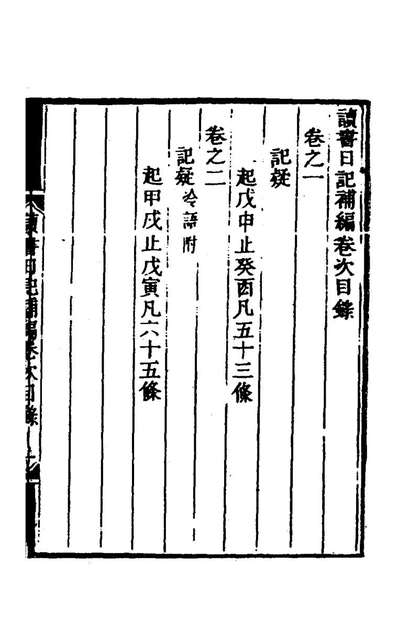 讀書日記補編卷次目錄
卷之一
記疑
起戊申止癸酉凡五十三條
卷之二
記疑 冷語附
起甲戌止戊寅凡六十五條
讀書日記補編卷次目錄 一